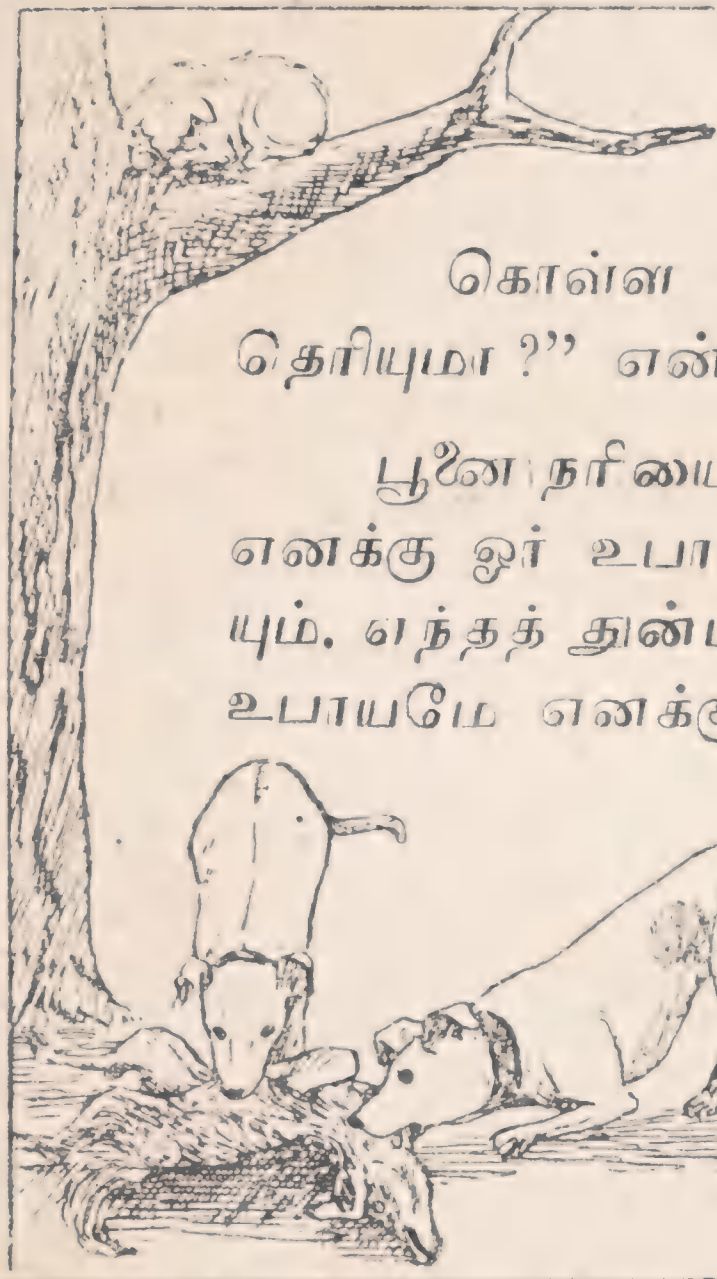 கொள்ள
தெரியுமா ?” என்
பூனை நரியை
எனக்கு ஓர் உபா
யும். எந்தத் துன்
உபாயமே எனக்கு